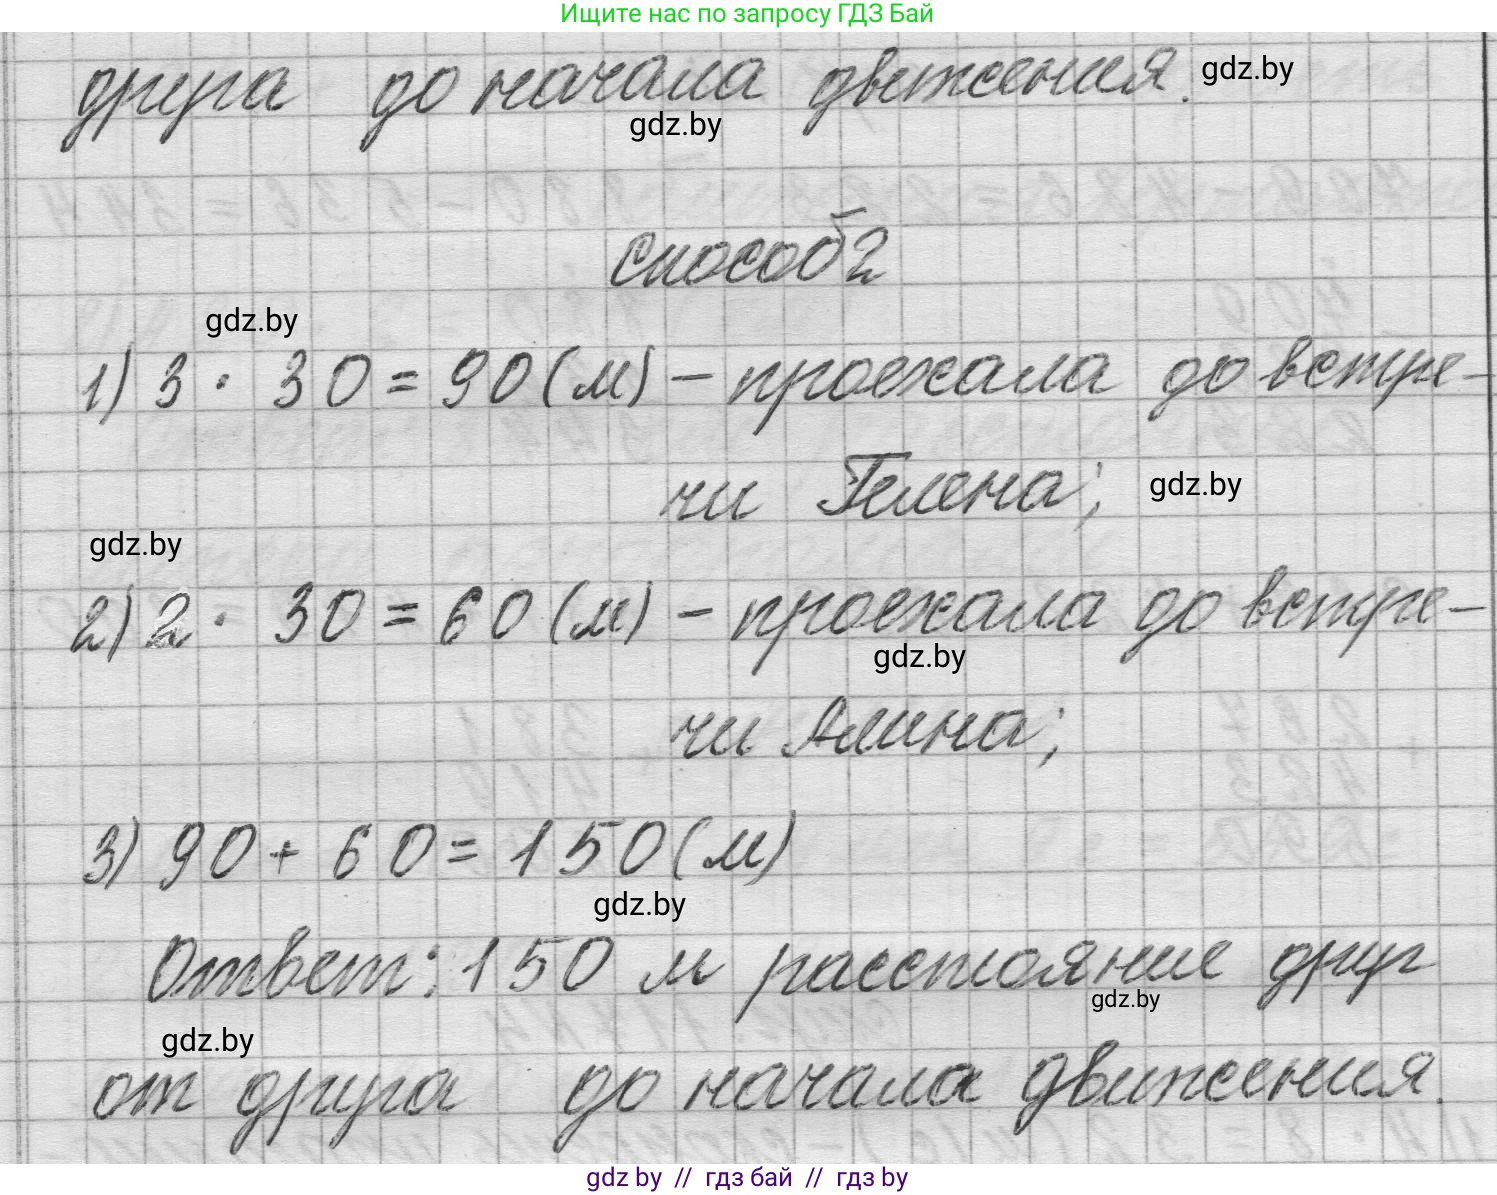 Ищите нас по запросу ГДЗ Бай
друга до начала движения. gdz.by
gdz.by
способ 2
gdz.by
1) 3 · 30 = 90 (м) – проехала до встре-
чи Гелена; gdz.by
gdz.by
2) 2 · 30 = 60 (м) – проехала до встре-
gdz.by
чи Алина;
3) 90 + 60 = 150 (м)
gdz.by
Ответ: 150 м расстояние друг
gdz.by
gdz.by
от друга до начала движения.
gdz by // гдз бай // гдз by